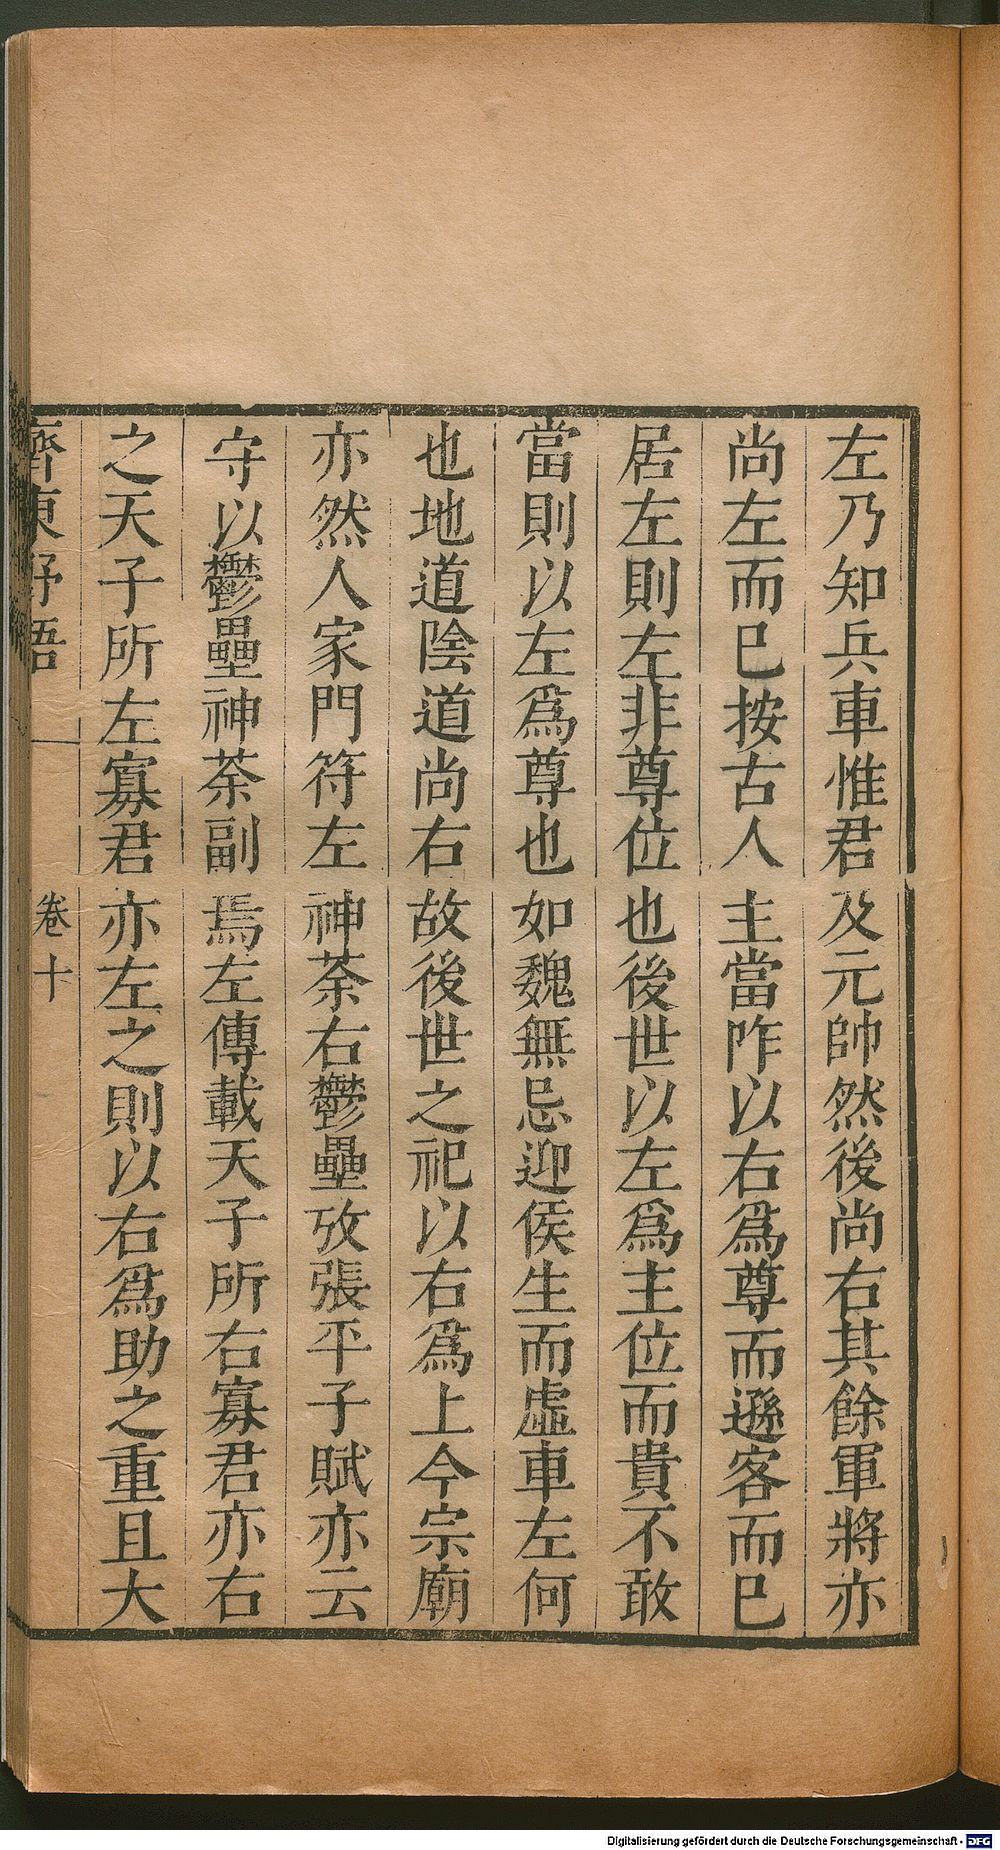 左乃知兵車惟君及元帥然後尚右其餘軍將亦
尚左而已按古人主當阼以右爲尊而遜客而已
居左則左非尊位也後世以左爲主位而貴不敢
當則以左爲尊也如魏無忌迎侯生而虛車左何
也地道陰道尚右故後世之祀以右爲上今宗廟
亦然人家門符左神荼右鬱壘攷張平子賦亦云
守以鬱壘神荼副焉左傳載天子所右寡君亦右
之天子所左寡君亦左之則以右爲助之重且大
齊東野語 卷十
Digitalisierung gefördert durch die Deutsche Forschungsgemeinschaft - DFG